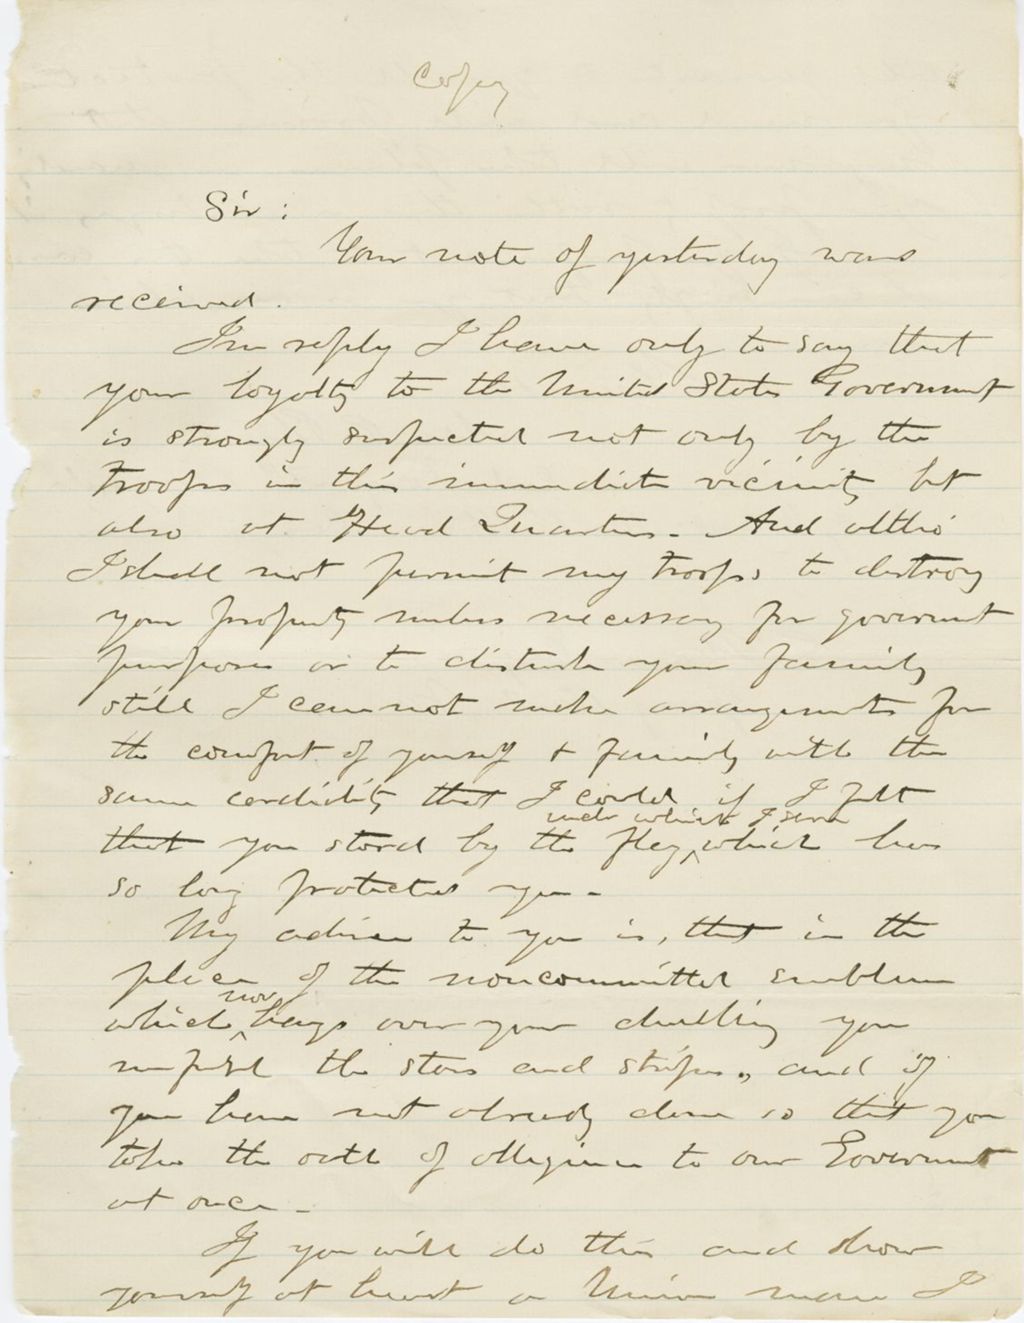 Copy
Sir:
Your note of yesterday was
received.
In reply I have only to say that
your loyalty to the United States Government
is strongly suspected not only by the
troops in this immediate vicinity but
also at Head Quarters. And altho'
I shall not permit my troops to destroy
your property unless necessary for government
purposes or to disturb your family
still I cannot make arrangements for
the comfort of yourself & family with the
same cordiality that I could if I felt
that you stood by the flag which has
under which I serve
so long protected you -
My advice to you is, that in the
place of the noncommittal emblem
which now hangs over your dwelling you
unfurl the stars and stripes, and if
you have not already done so that you
take the oath of allegiance to our Government
at once -
If you will do this and show
yourself at heart a Union man I